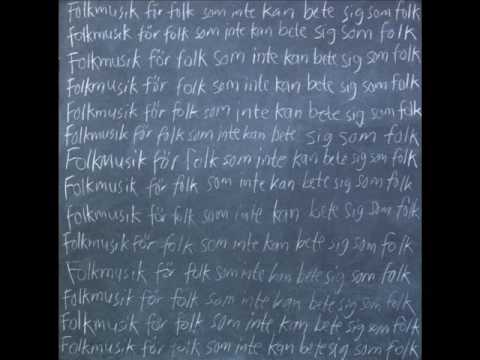 Folkmusik för folk som inte kan bete sig som folk
Folkmusik för folk som inte kan bete sig som folk
Folkmusik för folk som inte kan bete sig som folk
Folkmusik för folk som inte kan bete sig som folk
Folkmusik för folk som inte kan bete sig som folk
Folkmusik för folk som inte kan bete sig som folk
Folkmusik för folk som inte kan bete sig som folk
Folkmusik för folk som inte kan bete sig som folk
Folkmusik för folk som inte kan bete sig som folk
Folkmusik för folk som inte kan bete sig som folk
Folkmusik för folk som inte kan bete sig som folk
Folkmusik för folk som inte kan bete sig som folk
Folkmusik för folk som inte kan bete sig som folk
Folkmusik för folk som inte kan bete sig som folk